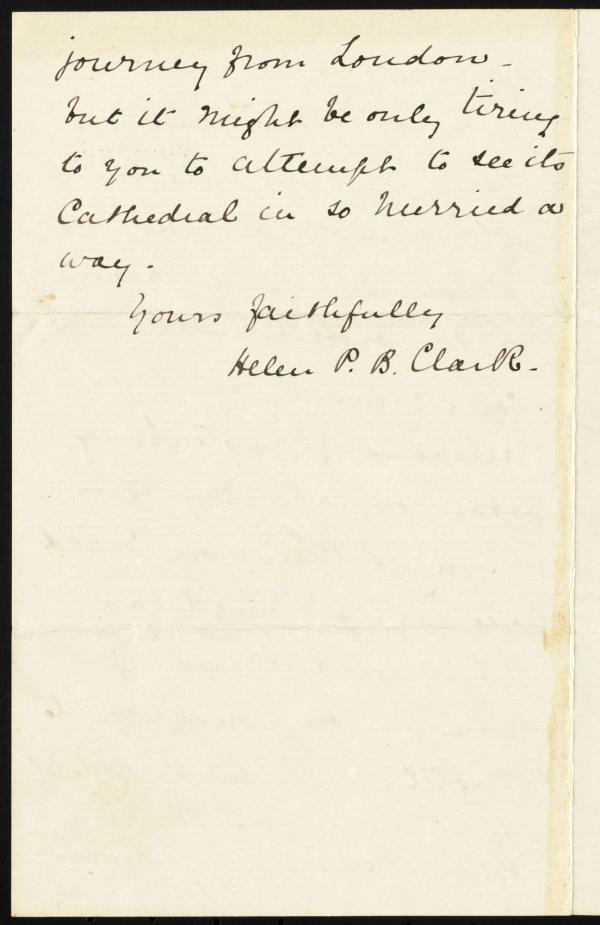 journey from London -
but it might be only tiring
to you to attempt to see its
Cathedral in so hurried a
way.
Yours faithfully
Helen P. B. Clark.